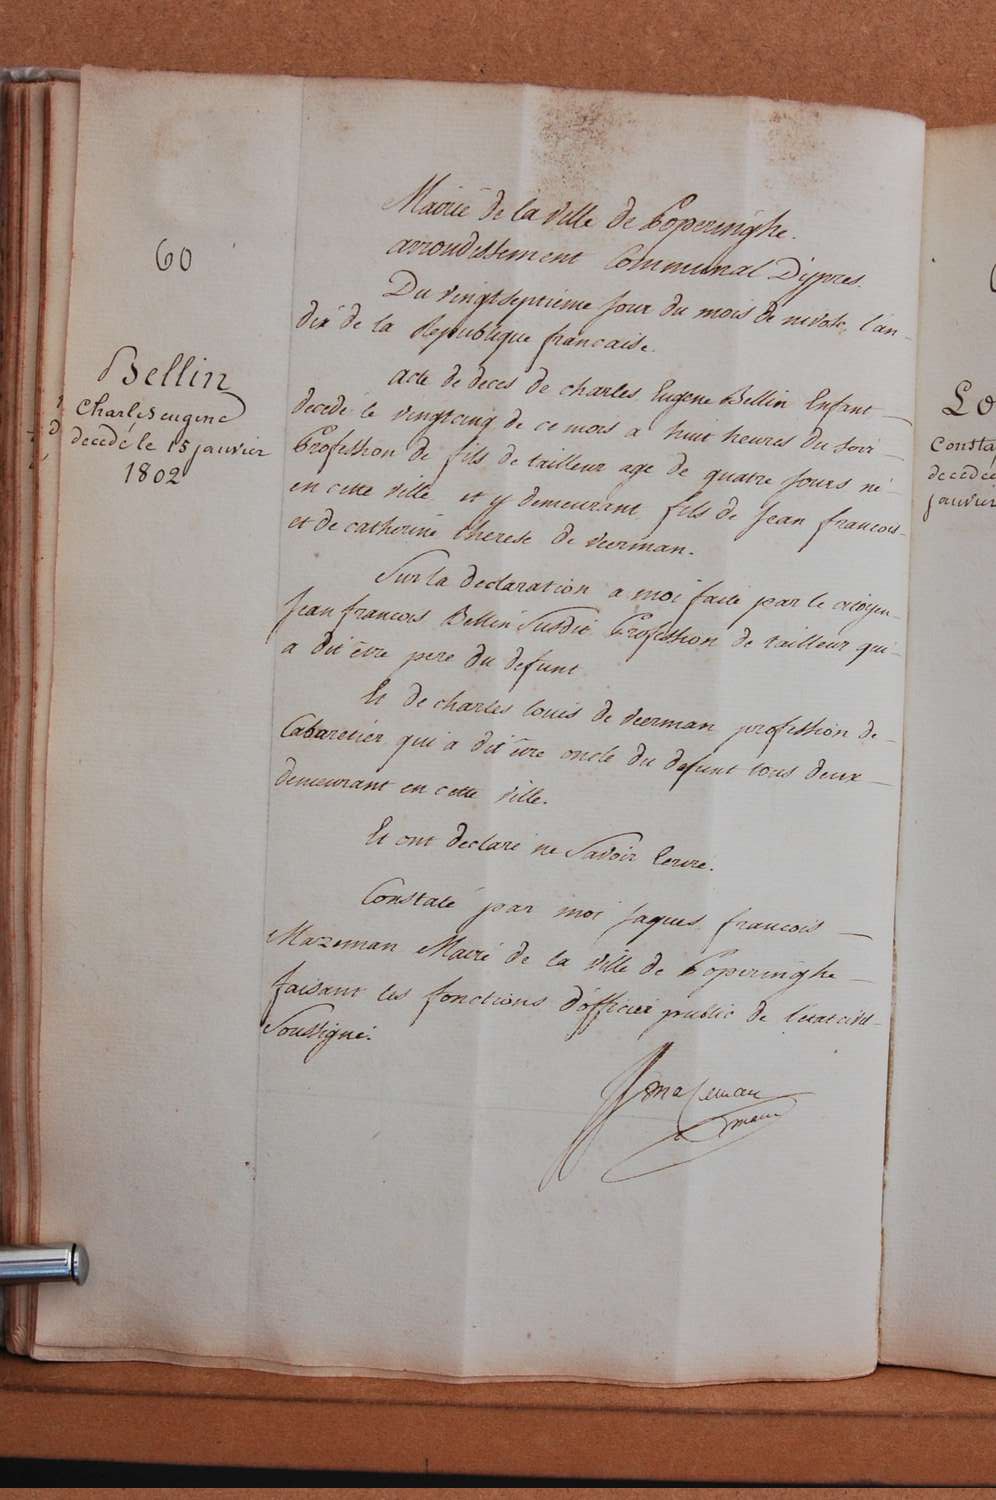 60
Bellin
Charles eugene
decedé le 15 janvier
1802
Mairie de la ville de Poperinghe.
arrondissement Communal D'ypres.
Du vingtseptieme jour du mois de nivose, l'an-
dix de la Republique francaise.
Acte de deces de charles Eugene Bellin Enfant
decedé le vingtcinq de ce mois a huit heures du soir
Profession de fils de tailleur age de quatre jours né
en cette ville et y demeurant, fils de jean francois-
et de catherine therese de veerman.
Sur la declaration a moi faite par le citoyen
Jean francois Bellin Susdit Profession de tailleur qui-
a dit être pere du defunt
Et de charles louis de veerman profession de-
Cabaretier qui a dit être oncle du defunt tous deux
demeurant en cette ville.
Et ont declaré ne Savoir Ecrire.
Constaté par moi jaques francois
Mazeman Maire de la ville de Poperinghe
faisant les fonctions d'officier public de l'etat civil
Soussigné.
mazeman
maire
Lo
Consta
decedée
janvier